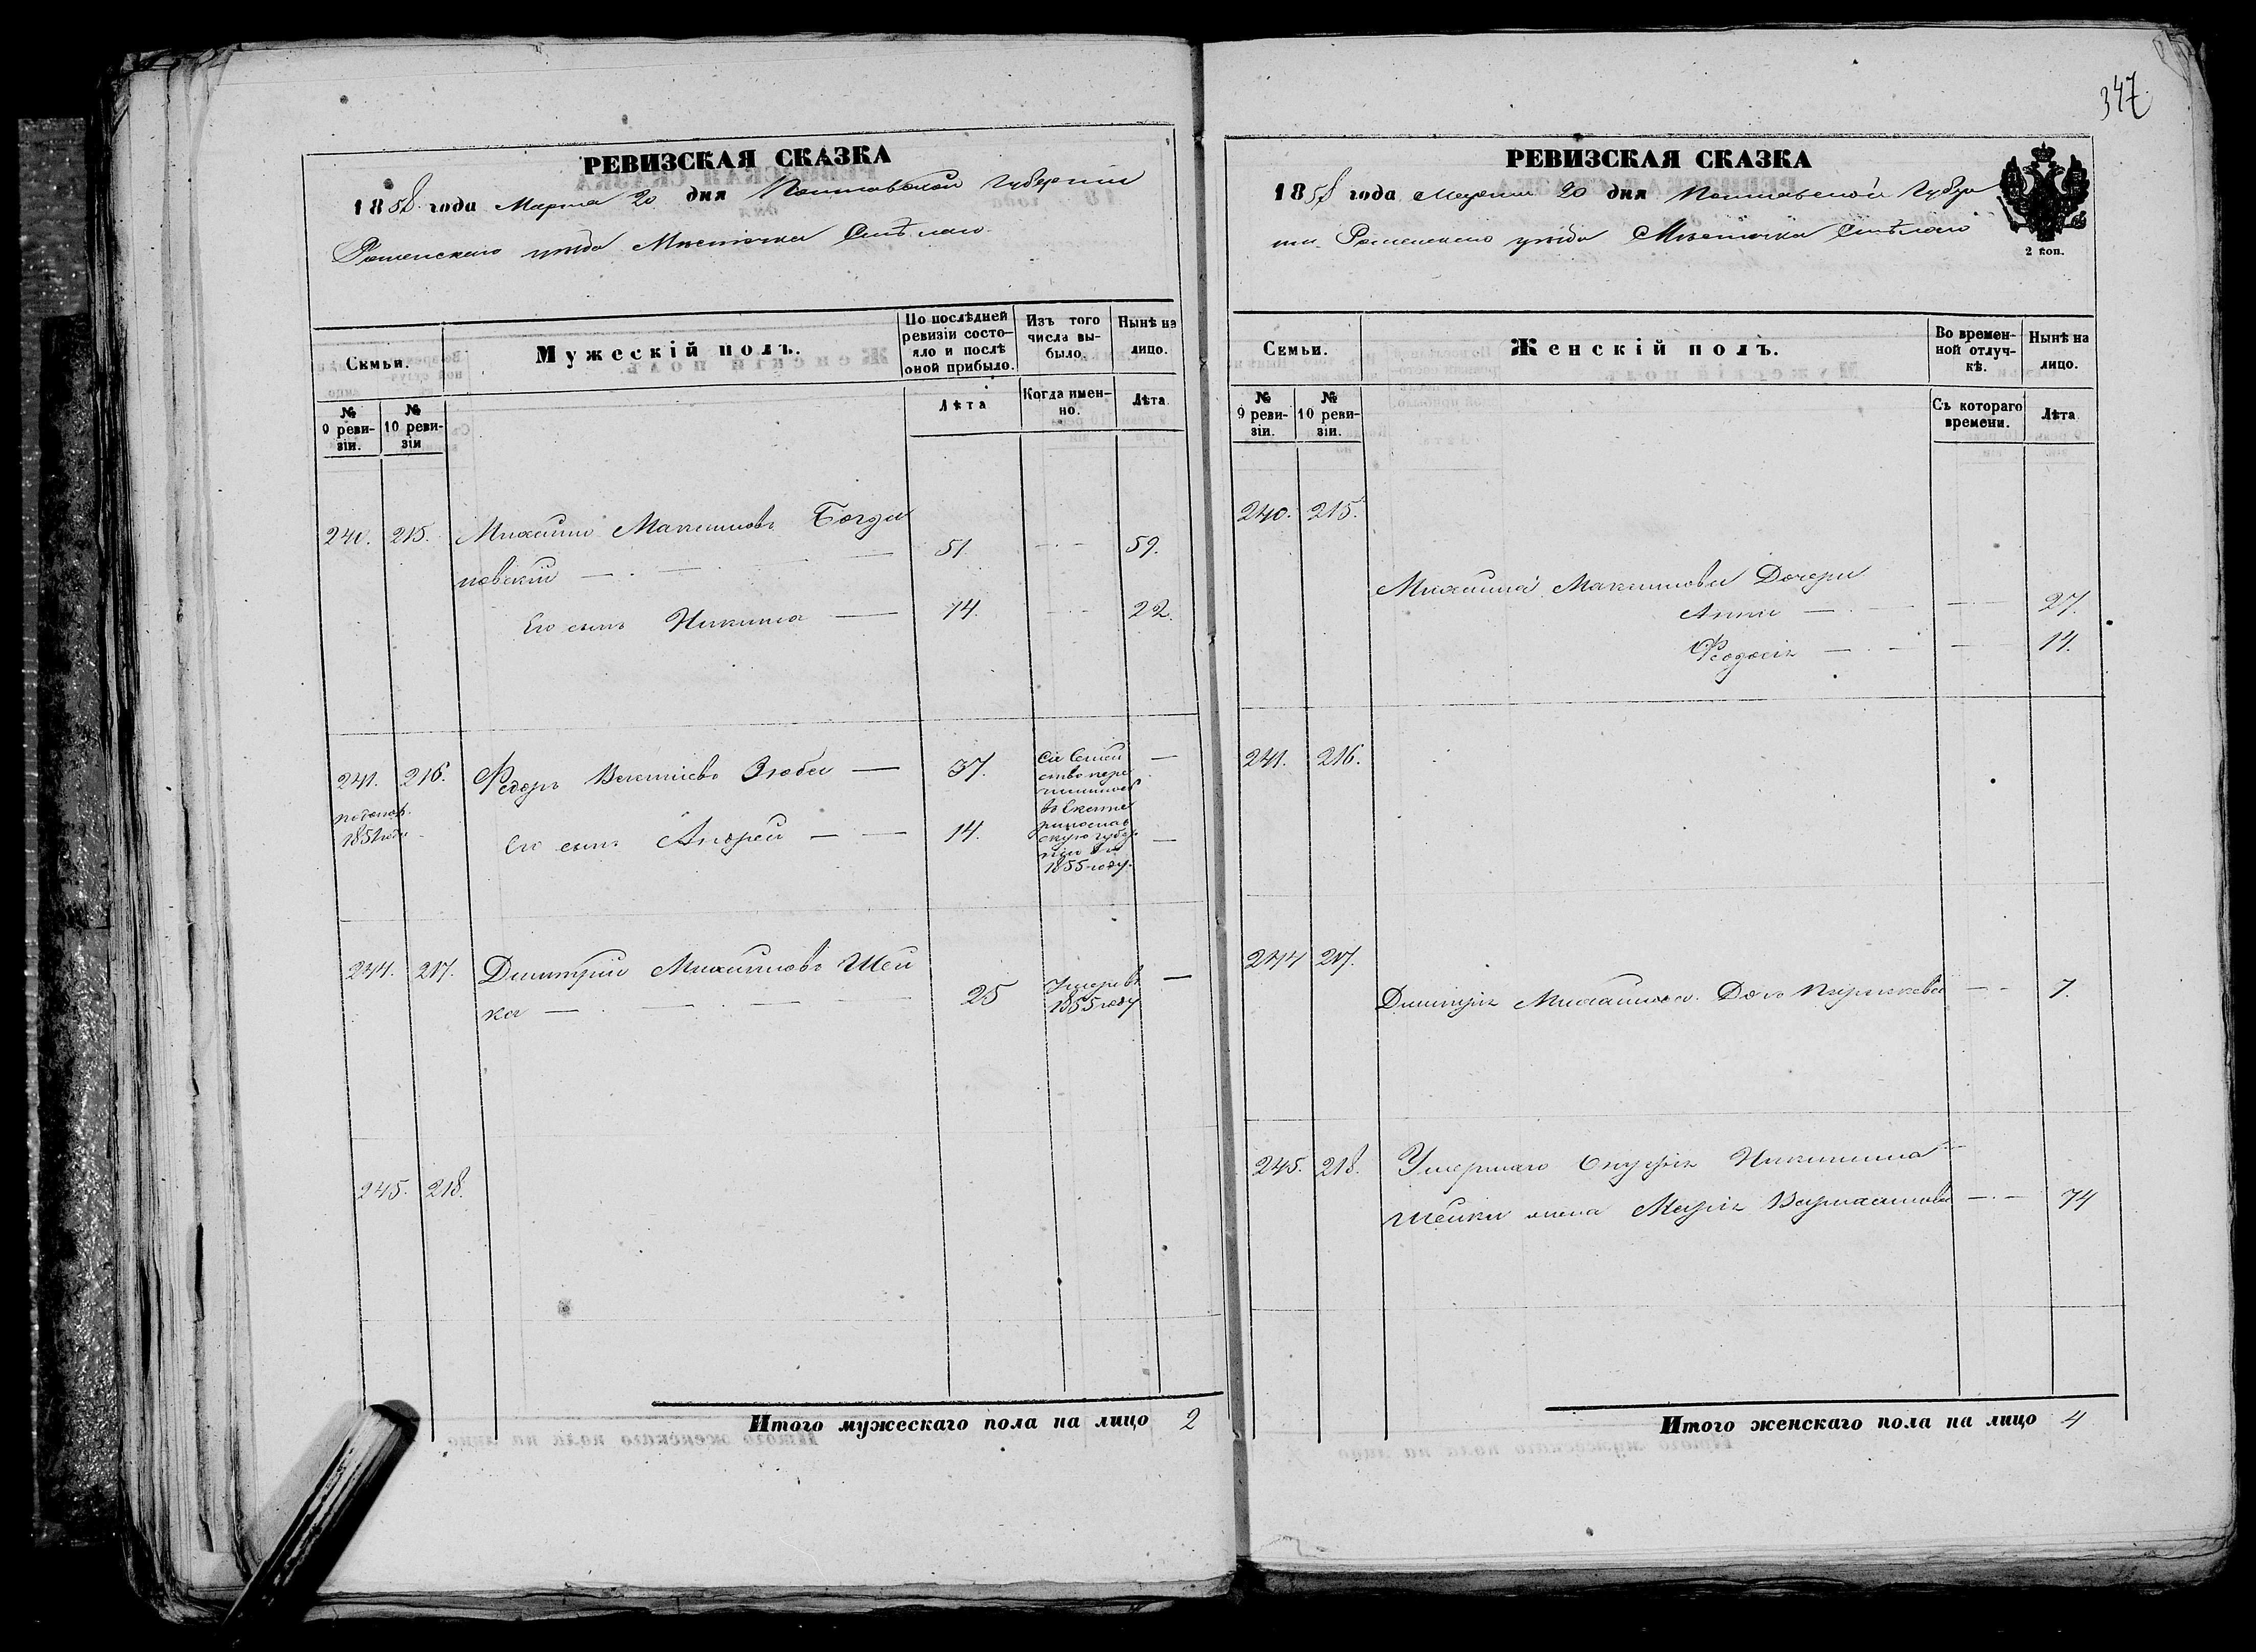 347
РЕВИЗСКАЯ СКАЗКА
1858 года Марта 20 дня Полтавской Губернии
Роменскаго уезда Местечка Смѣлаго
Семьи.
Мужескій полъ.
По послѣдней ревизіи состояло и послѣ оной прибыло.
Изъ того числа выбыло.
Нынѣ на лицо.
№ 9 ревизіи.
№ 10 ревизіи
Лѣта
Когда именно.
Лѣта
240. 215. Михаило Максимовъ Богда
новскій 51. 59.
Его сынъ Никита 14. 22.
241. 216. Федоръ Зюба 37.
1851 года
Его сынъ Андрей 14.
Сіе Семей
ство пере
въ Екате
ринослав
скую губер
нію въ
1855 году.
244. 217. Дмитрій Михайловъ Шей
ка 25
Умеръ въ
1855 году
245. 218.
Итого мужескаго пола на лицо 2
РЕВИЗСКАЯ СКАЗКА
1858 года Марта 20 дня Полтавской Губер
нии Роменскаго уезда Местечка Смѣлаго
2 коп.
Семьи.
Женскій полъ.
Во временной отлучкѣ.
Нынѣ на лицо.
№ 9 ревизіи.
№ 10 ревизіи.
Съ котораго времени.
Лѣта
240. 215.
Михаила Максимова Дочери
Анна 27.
Феодосія 14.
241. 216.
244 217.
Дмитрія Михайлова Дочь 7.
245. 218. Умершаго Никитина
Шейки жена Марія 74
Итого женскаго пола на лицо 4